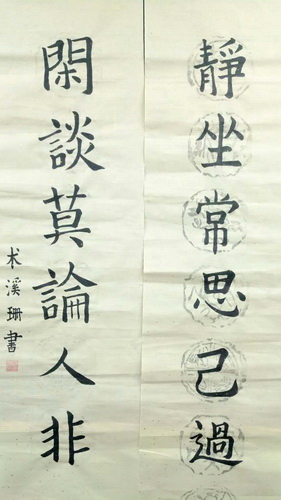 靜坐常思己過
閑談莫論人非
术溪珊書